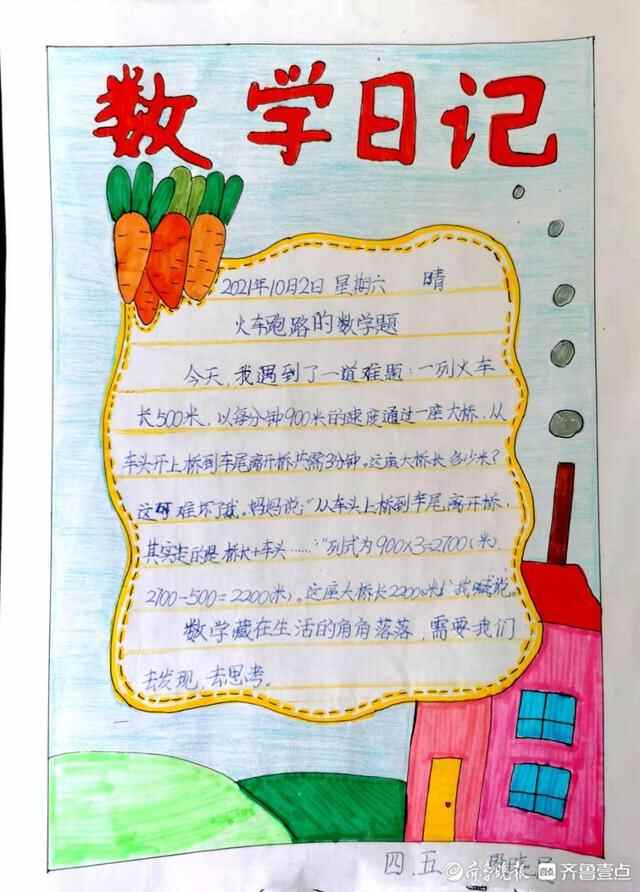 数学日记
2021年10月2日 星期六 晴
火车跑路的数学题
今天，我遇到了一道难题：一列火车
长500米，以每分钟900米的速度通过一座大桥，从
车头开上桥到车尾离开桥共需3分钟。这座大桥长多少米？
这可难坏了我，妈妈说：“从车头上桥到车尾离开桥，
其实走的是桥长+车头……”列式为900×3=2700(米)
2700-500=2200(米)。这座大桥长2200米！我喊说。
数学藏在生活的角角落落，需要我们
去发现，去思考。
四.五
齐鲁晚报 齐鲁壹点